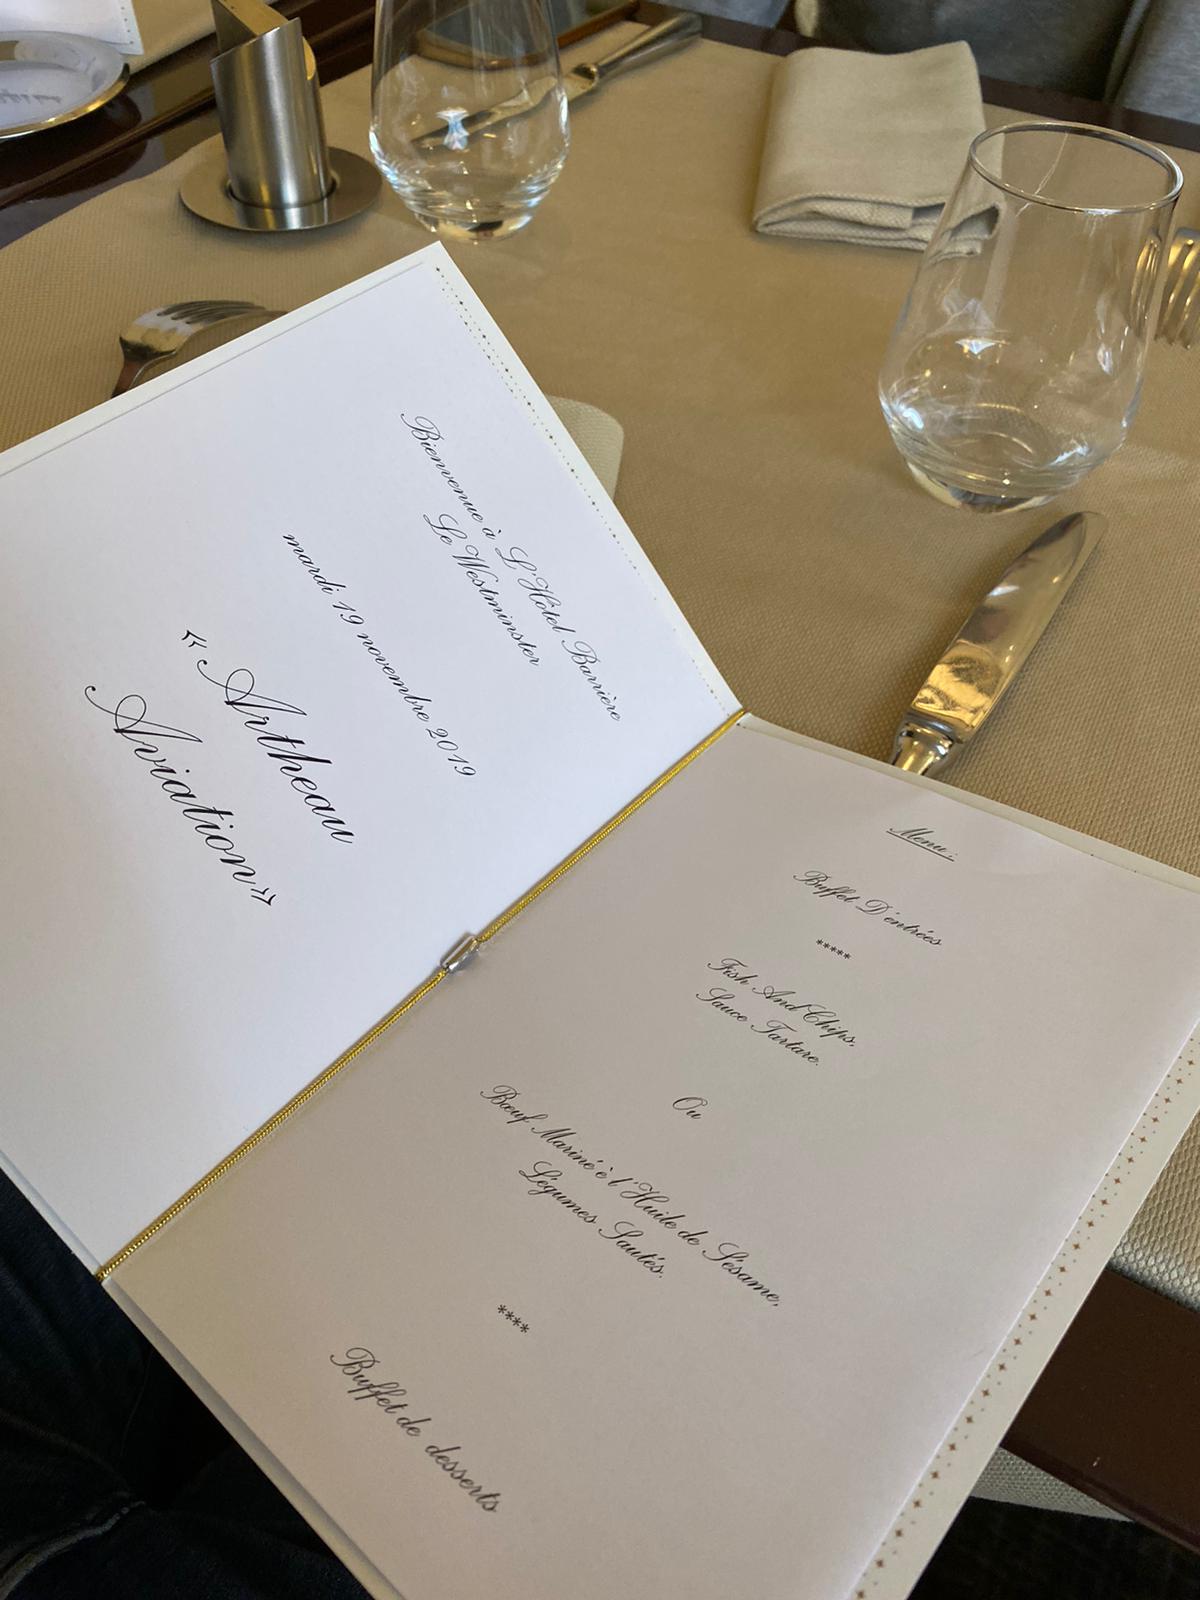 Bienvenue à L'Hôtel Barrière
Le Westminster
mardi 19 novembre 2019
« Artheau
Aviation»
Menu :
Buffet D'entrées
*****
Fish And Chips,
Sauce Tartare.
Ou
Bœuf Mariné è l'Huile de Sésame,
Légumes Sautés.
****
Buffet de desserts